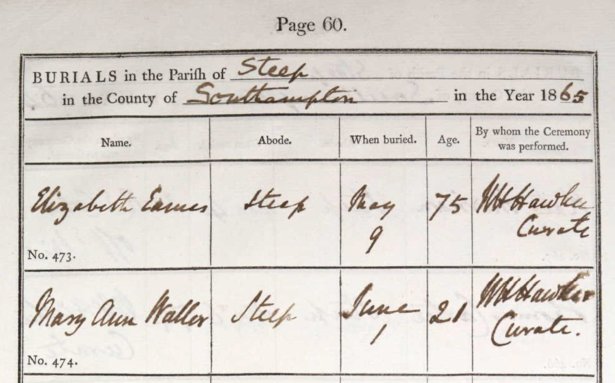 Page 60.
BURIALS in the Parish of Steep
in the County of Southampton in the Year 1865
Name. Abode. When buried. Age. By whom the Ceremony
was performed.
Elizabeth Eames Steep May 75 WH Hawker
9 Curate
No. 473.
Mary Ann Waller Steep June 21 WH Hawker
1 Curate.
No. 474.